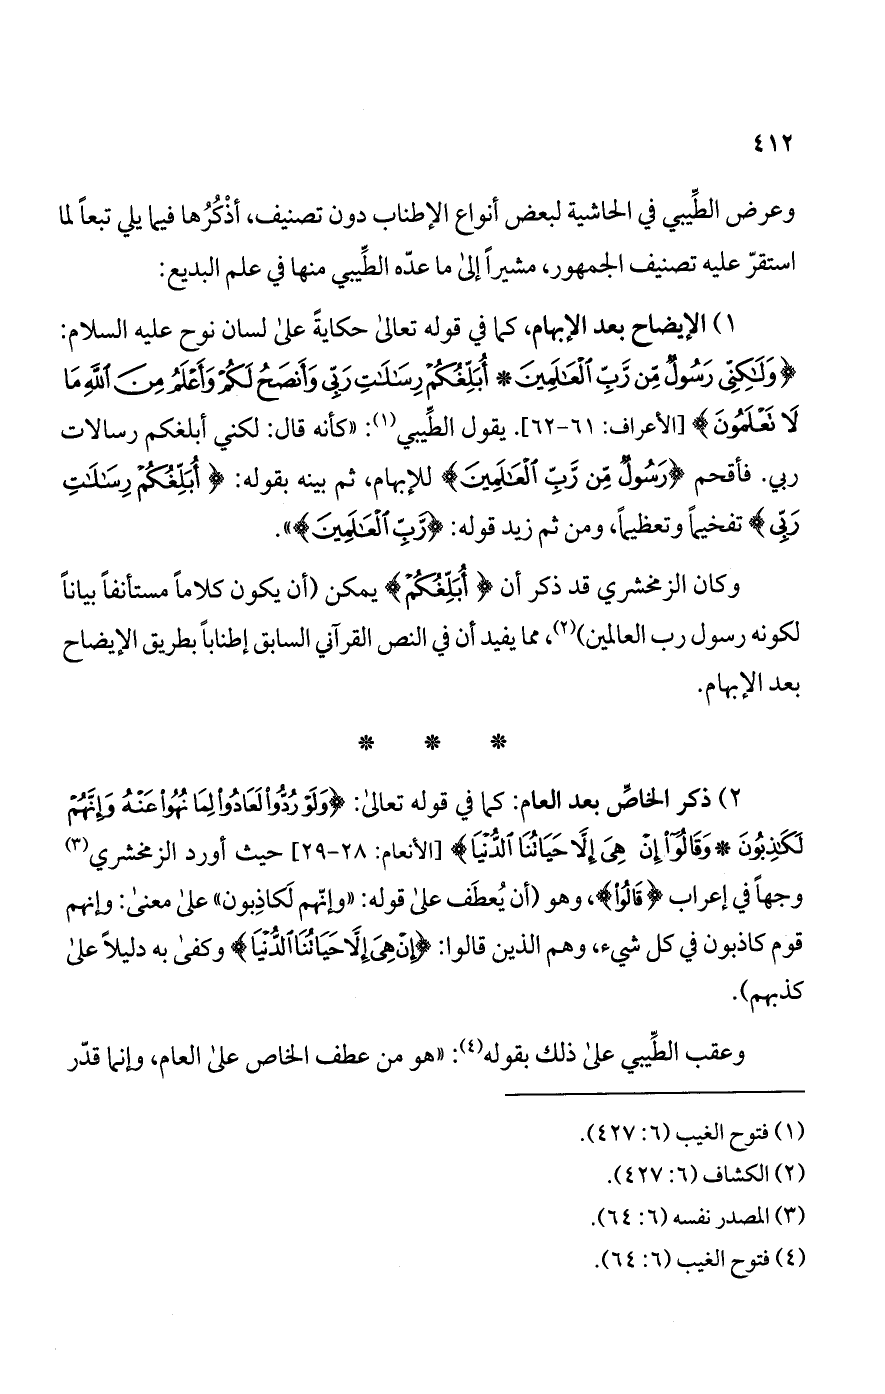 ٤١٢
وعرض الطِّيبي في الحاشية لبعض أنواع الإطناب دون تصنيف، أذْكُرُها فيما يلي تبعاً لما
استقرّ عليه تصنيف الجمهور، مشيراً إلىٰ ما عدّه الطِّيبي منها في علم البديع:
١) الإيضاح بعد الإبهام، كما في قوله تعالىٰ حكايةً علىٰ لسان نوح عليه السلام:
﴿وَلَٰكِنِّي رَسُولٌ مِّن رَّبِّ ٱلْعَٰلَمِينَ * أُبَلِّغُكُمْ رِسَٰلَٰتِ رَبِّي وَأَنصَحُ لَكُمْ وَأَعْلَمُ مِنَ ٱللَّهِ مَا
لَا تَعْلَمُونَ﴾ [الأعراف: ٦١-٦٢]. يقول الطِّيبي(١): «كأنه قال: لكني أبلغكم رسالات
ربي. فأقحم ﴿رَسُولٌ مِّن رَّبِّ ٱلْعَٰلَمِينَ﴾ للإبهام، ثم بينه بقوله: ﴿أُبَلِّغُكُمْ رِسَٰلَٰتِ
رَبِّي﴾ تفخيماً وتعظيماً، ومن ثم زيد قوله: ﴿رَّبِّ ٱلْعَٰلَمِينَ﴾».
وكان الزمخشري قد ذكر أن ﴿أُبَلِّغُكُمْ﴾ يمكن (أن يكون كلاماً مستأنفاً بياناً
لكونه رسول رب العالمين)(٢)، مما يفيد أن في النص القرآني السابق إطناباً بطريق الإيضاح
بعد الإبهام.
* * *
٢) ذكر الخاصِّ بعد العام: كما في قوله تعالىٰ: ﴿وَلَوْ رُدُّوا۟ لَعَادُوا۟ لِمَا نُهُوا۟ عَنْهُ وَإِنَّهُمْ
لَكَٰذِبُونَ * وَقَالُوٓا۟ إِنْ هِىَ إِلَّا حَيَاتُنَا ٱلدُّنْيَا﴾ [الأنعام: ٢٨-٢٩] حيث أورد الزمخشري(٣)
وجهاً في إعراب ﴿قَالُوٓا۟﴾، وهو (أن يُعطَف علىٰ قوله: «وإنّهم لَكاذِبون» علىٰ معنىٰ: وإنهم
قوم كاذبون في كل شيء، وهم الذين قالوا: ﴿إِنْ هِىَ إِلَّا حَيَاتُنَا ٱلدُّنْيَا﴾ وكفىٰ به دليلاً علىٰ
كذبهم).
وعقب الطِّيبي علىٰ ذلك بقوله(٤): «هو من عطف الخاص علىٰ العام، وإنما قدّر
(١) فتوح الغيب (٦: ٤٢٧).
(٢) الكشاف (٦: ٤٢٧).
(٣) المصدر نفسه (٦: ٦٤).
(٤) فتوح الغيب (٦: ٦٤).